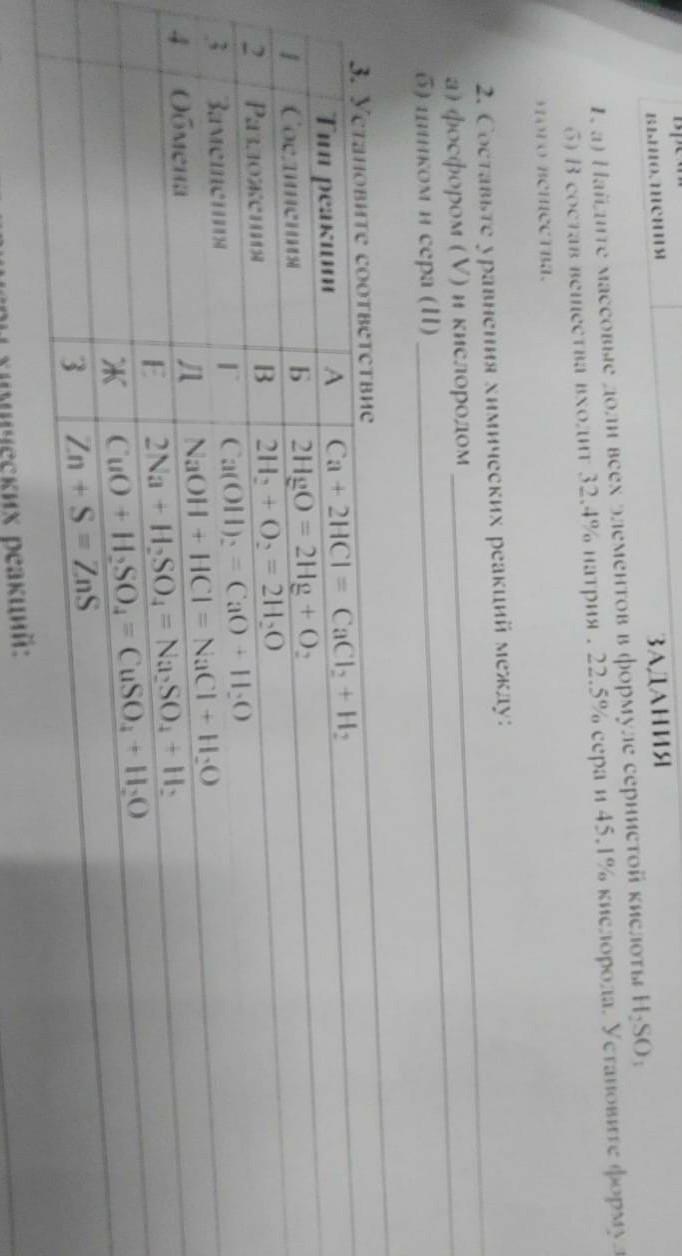 Время
выполнения
ЗАДАНИЯ
1. а) Найдите массовые доли всех элементов в формуле сернистой кислоты H₂SO₃
б) В состав вещества входит 32,4% натрия , 22,5% сера и 45,1% кислорода. Установите форму
этого вещества.
2. Составьте уравнения химических реакций между:
а) фосфором (V) и кислородом
б) цинком и сера (II)
3. Установите соответствие
Тип реакции А Ca + 2HCl = CaCl₂ + H₂
1 Соединения Б 2HgO = 2Hg + O₂
2 Разложения В 2H₂ + O₂ = 2H₂O
3 Замещения Г Ca(OH)₂ = CaO + H₂O
4 Обмена Д NaOH + HCl = NaCl + H₂O
Е 2Na + H₂SO₄ = Na₂SO₄ + H₂
Ж CuO + H₂SO₄ = CuSO₄ + H₂O
З Zn + S = ZnS
химических реакций: